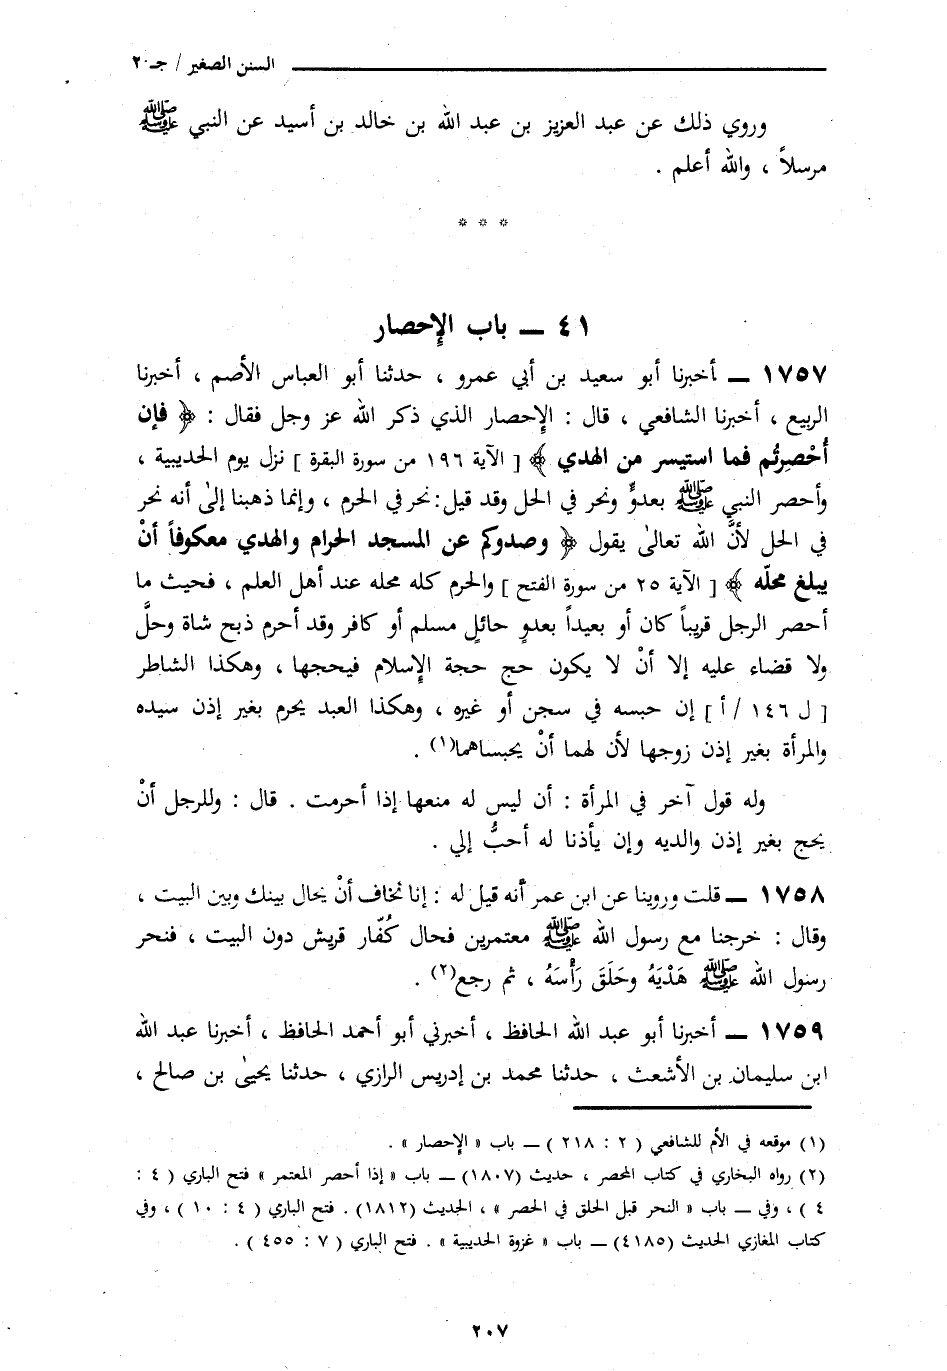 السنن الصغير / جـ ٢٠
وروي ذلك عن عبد العزيز بن عبد الله بن خالد بن أسيد عن النبي ﷺ
مرسلاً ، والله أعلم .
* * *
٤١ ـ باب الإحصار
١٧٥٧ ـ أخبرنا أبو سعيد بن أبي عمرو ، حدثنا أبو العباس الأصم ، أخبرنا
الربيع ، أخبرنا الشافعي ، قال : الإحصار الذي ذكر الله عز وجل فقال : ﴿ فإن
أُحْصِرتُم فما استيسر من الهدي ﴾ [ الآية ١٩٦ من سورة البقرة ] نزل يوم الحديبية ،
وأحصر النبي ﷺ بعدوٍّ ونحر في الحل وقد قيل: نحر في الحرم ، وإنما ذهبنا إلىٰ أنه نحر
في الحل لأنَّ الله تعالىٰ يقول ﴿ وصدوكم عن المسجد الحرام والهدي معكوفاً أنْ
يبلغ محلّه ﴾ [ الآية ٢٥ من سورة الفتح ] والحرم كله محله عند أهل العلم ، فحيث ما
أحصر الرجل قريباً كان أو بعيداً بعدوٍ حائلٍ مسلم أو كافر وقد أحرم ذبح شاة وحلَّ
ولا قضاء عليه إلا أنْ لا يكون حج حجة الإسلام فيحجها ، وهكذا الشاطر
[ ل ١٤٦ / أ ] إن حبسه في سجن أو غيره ، وهكذا العبد يحرم بغير إذن سيده
والمرأة بغير إذن زوجها لأن لهما أنْ يحبساهما(١) .
وله قول آخر في المرأة : أن ليس له منعها إذا أحرمت . قال : وللرجل أنْ
يحج بغير إذن والديه وإن يأذنا له أحبُّ إلي .
١٧٥٨ ـ قلت وروينا عن ابن عمر أنه قيل له : إنا نخاف أنْ يحال بينك وبين البيت ،
وقال : خرجنا مع رسول الله ﷺ معتمرين فحال كُفّار قريش دون البيت ، فنحر
رسول الله ﷺ هَدْيَهُ وحَلَقَ رَأْسَهُ ، ثم رجع(٢) .
١٧٥٩ ـ أخبرنا أبو عبد الله الحافظ ، أخبرني أبو أحمد الحافظ ، أخبرنا عبد الله
ابن سليمان بن الأشعث ، حدثنا محمد بن إدريس الرازي ، حدثنا يحيىٰ بن صالح ،
(١) موقعه في الأم للشافعي ( ٢ : ٢١٨ ) ـ باب « الإحصار » .
(٢) رواه البخاري في كتاب المحصر ، حديث (١٨٠٧) ـ باب « إذا أحصر المعتمر » فتح الباري ( ٤ :
٤ ) ، وفي ـ باب « النحر قبل الحلق في الحصر » ، الحديث (١٨١٢) . فتح الباري ( ٤ : ١٠ ) ، وفي
كتاب المغازي الحديث (٤١٨٥) ـ باب « غزوة الحديبية » . فتح الباري ( ٧ : ٤٥٥ ) .
٢٠٧